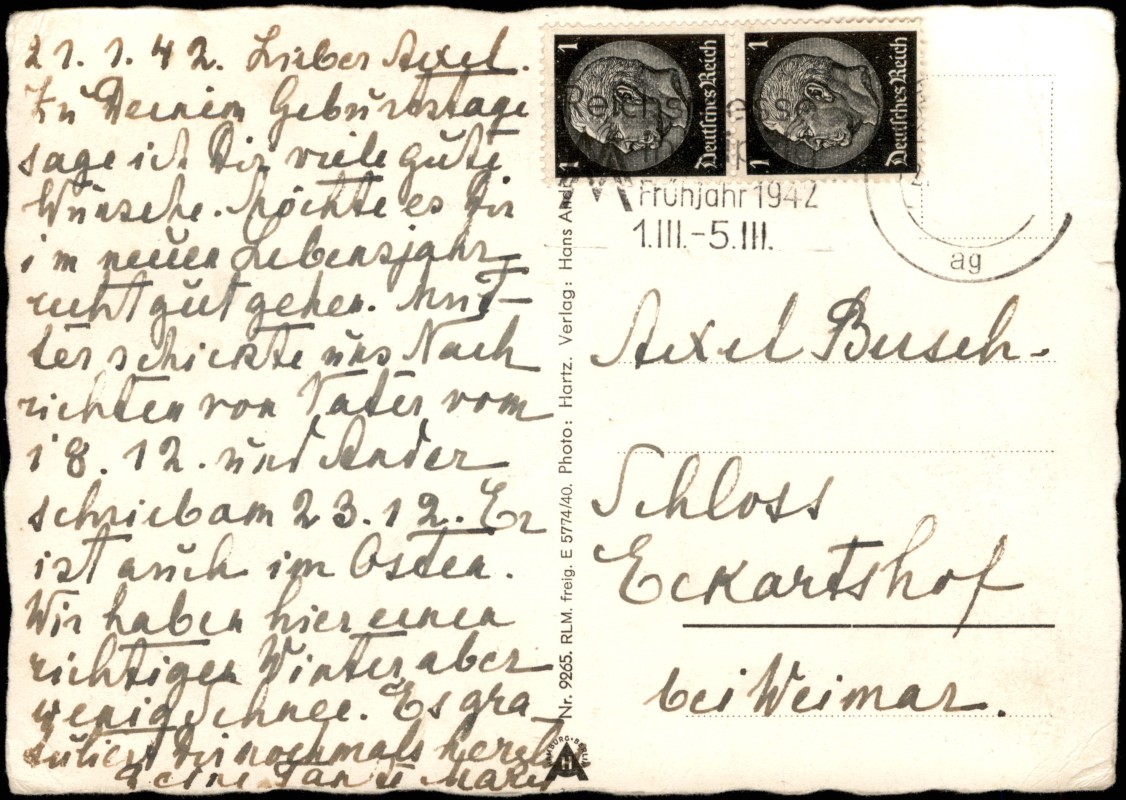 21.1.42. Lieber Axel.
Zu Deinem Geburtstage
sage ich Dir viele gute
Wünsche. Möchte es Dir
im neuen Lebensjahr
recht gut gehen. Mut-
ter schickte uns Nach
richten von Vater vom
18.12. und
schrieb am 23.12. Er
ist auch im Osten.
Wir haben hier einen
richtigen Winter aber
wenig Schnee. Es gra_
tuliert Dir nochmals herzl.
Deine Tante
1 Deutsches Reich
1
1 Deutsches Reich
1
Reichs
Frühjahr 1942
1.III.-5.III.
ag
Nr. 9265. RLM. freig. E 5774/40. Photo: Hartz. Verlag: Hans
Axel Busch-
Schloss
Eckartshof
bei Weimar.